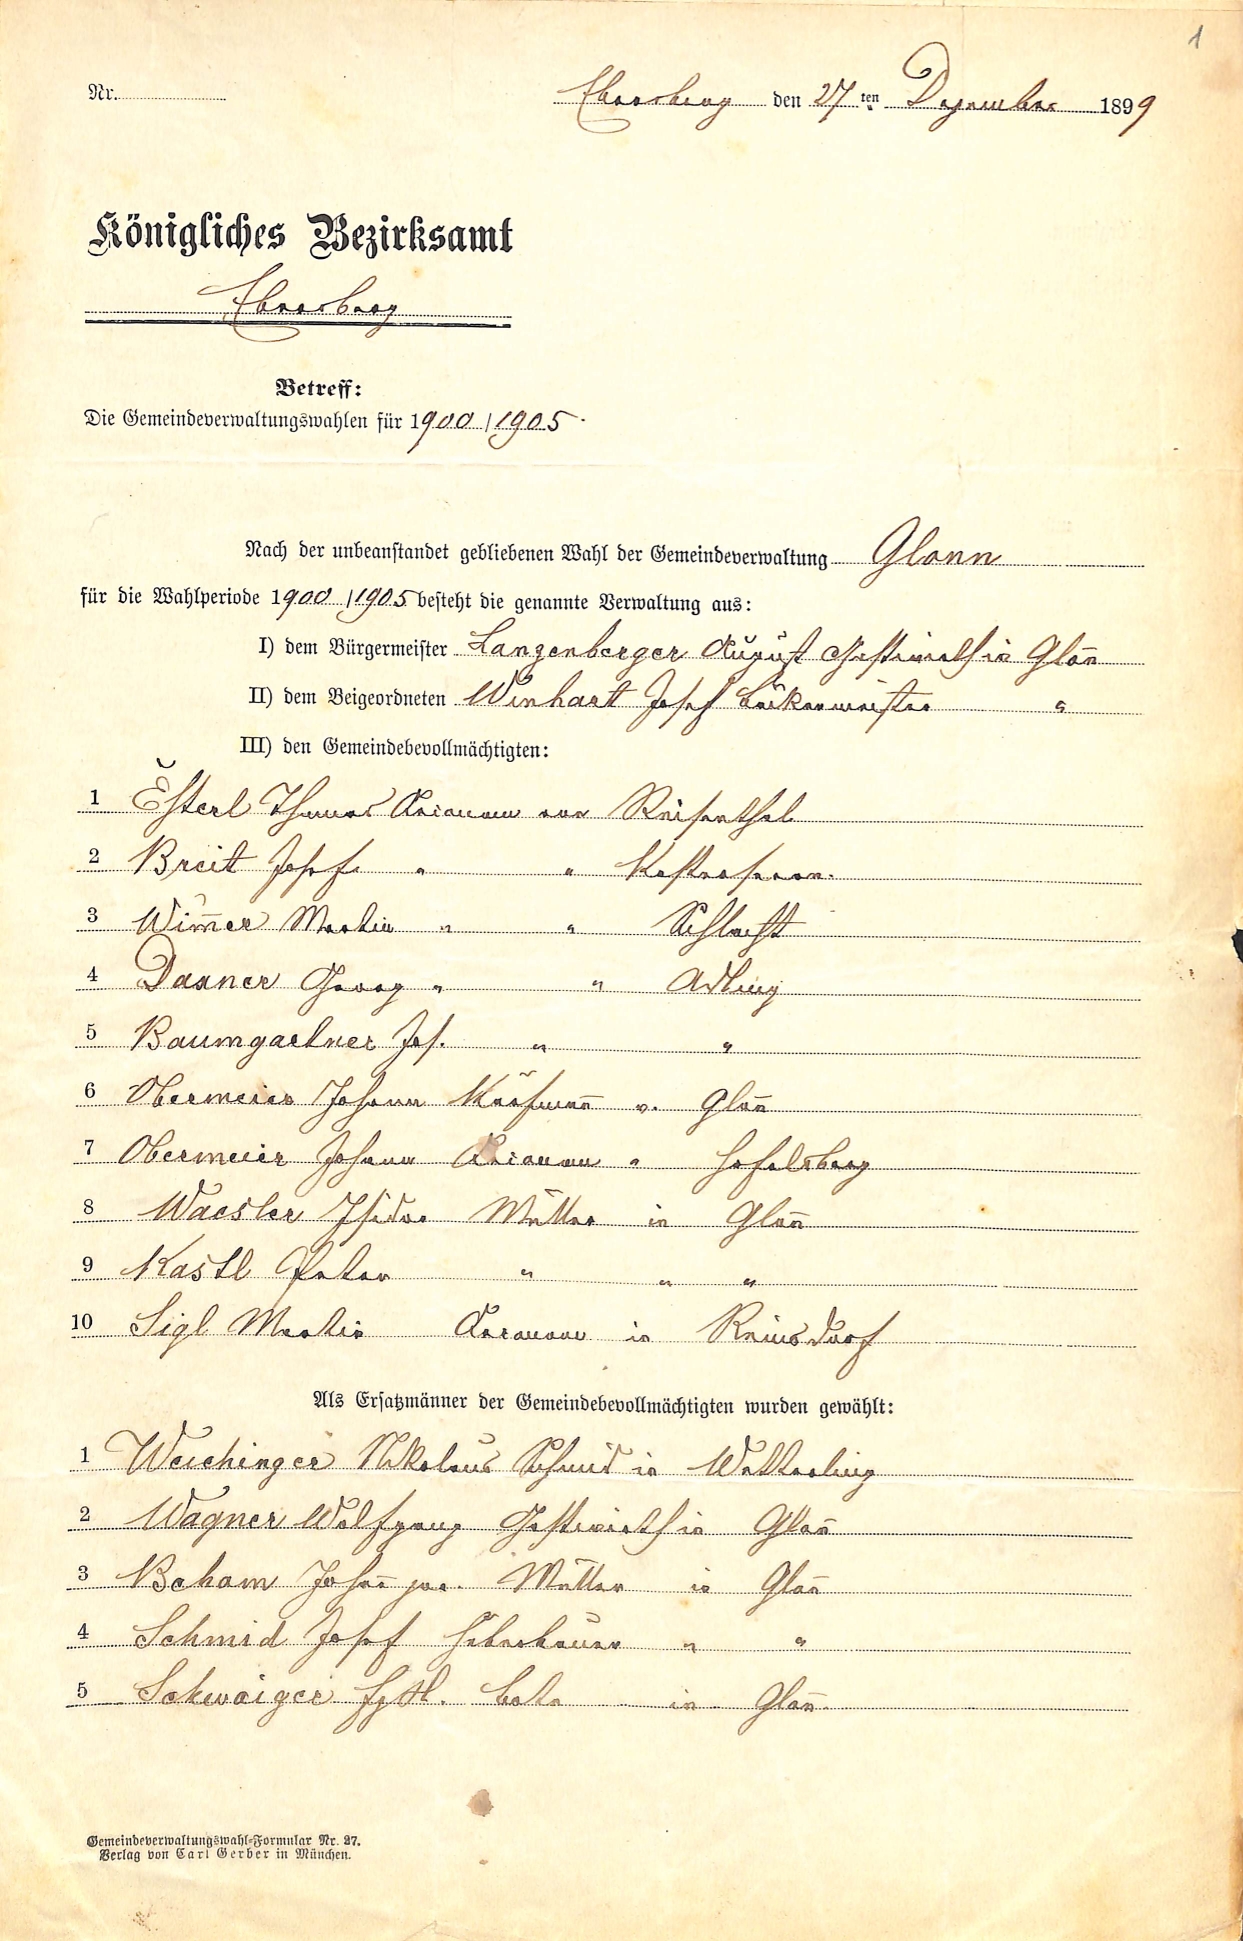 1
Nr. Ebersberg den 27ten Dezember 1899
Königliches Bezirksamt
Ebersberg
Betreff:
Die Gemeindeverwaltungswahlen für 1900/1905.
Nach der unbeanstandet gebliebenen Wahl der Gemeindeverwaltung Glonn
für die Wahlperiode 1900/1905 besteht die genannte Verwaltung aus:
I) dem Bürgermeister Lanzenberger August Gastwirth in Glon̅
II) dem Beigeordneten Winhart Josef Bäckermeister "
III) den Gemeindebevollmächtigten:
1 Esterl Thomas von Reisenthal
2 Breit Josef " "
3 Wim̅er Martin " " Schlacht
4 Daxner Georg " " Adling
5 Baumgartner Jos. " "
6 Obermeier Johann Kaufman̅ v. Glon̅
7 Obermeier Johann "
8 Waesler Isidor Müller in Glon̅
9 Kastl Peter " " "
10 Sigl Martin in Reinsdorf
Als Ersatzmänner der Gemeindebevollmächtigten wurden gewählt:
1 Weichinger Nikolaus Schmid in Wetterling
2 Wagner Wolfgang Gastwirth in Glon̅
3 Beham Johan̅ jun. Müller in Glon̅
4 Schmid Josef " "
5 Schwaiger in Glon̅.
Gemeindeverwaltungswahl-Formular Nr. 27.
Verlag von Carl Gerber in München.